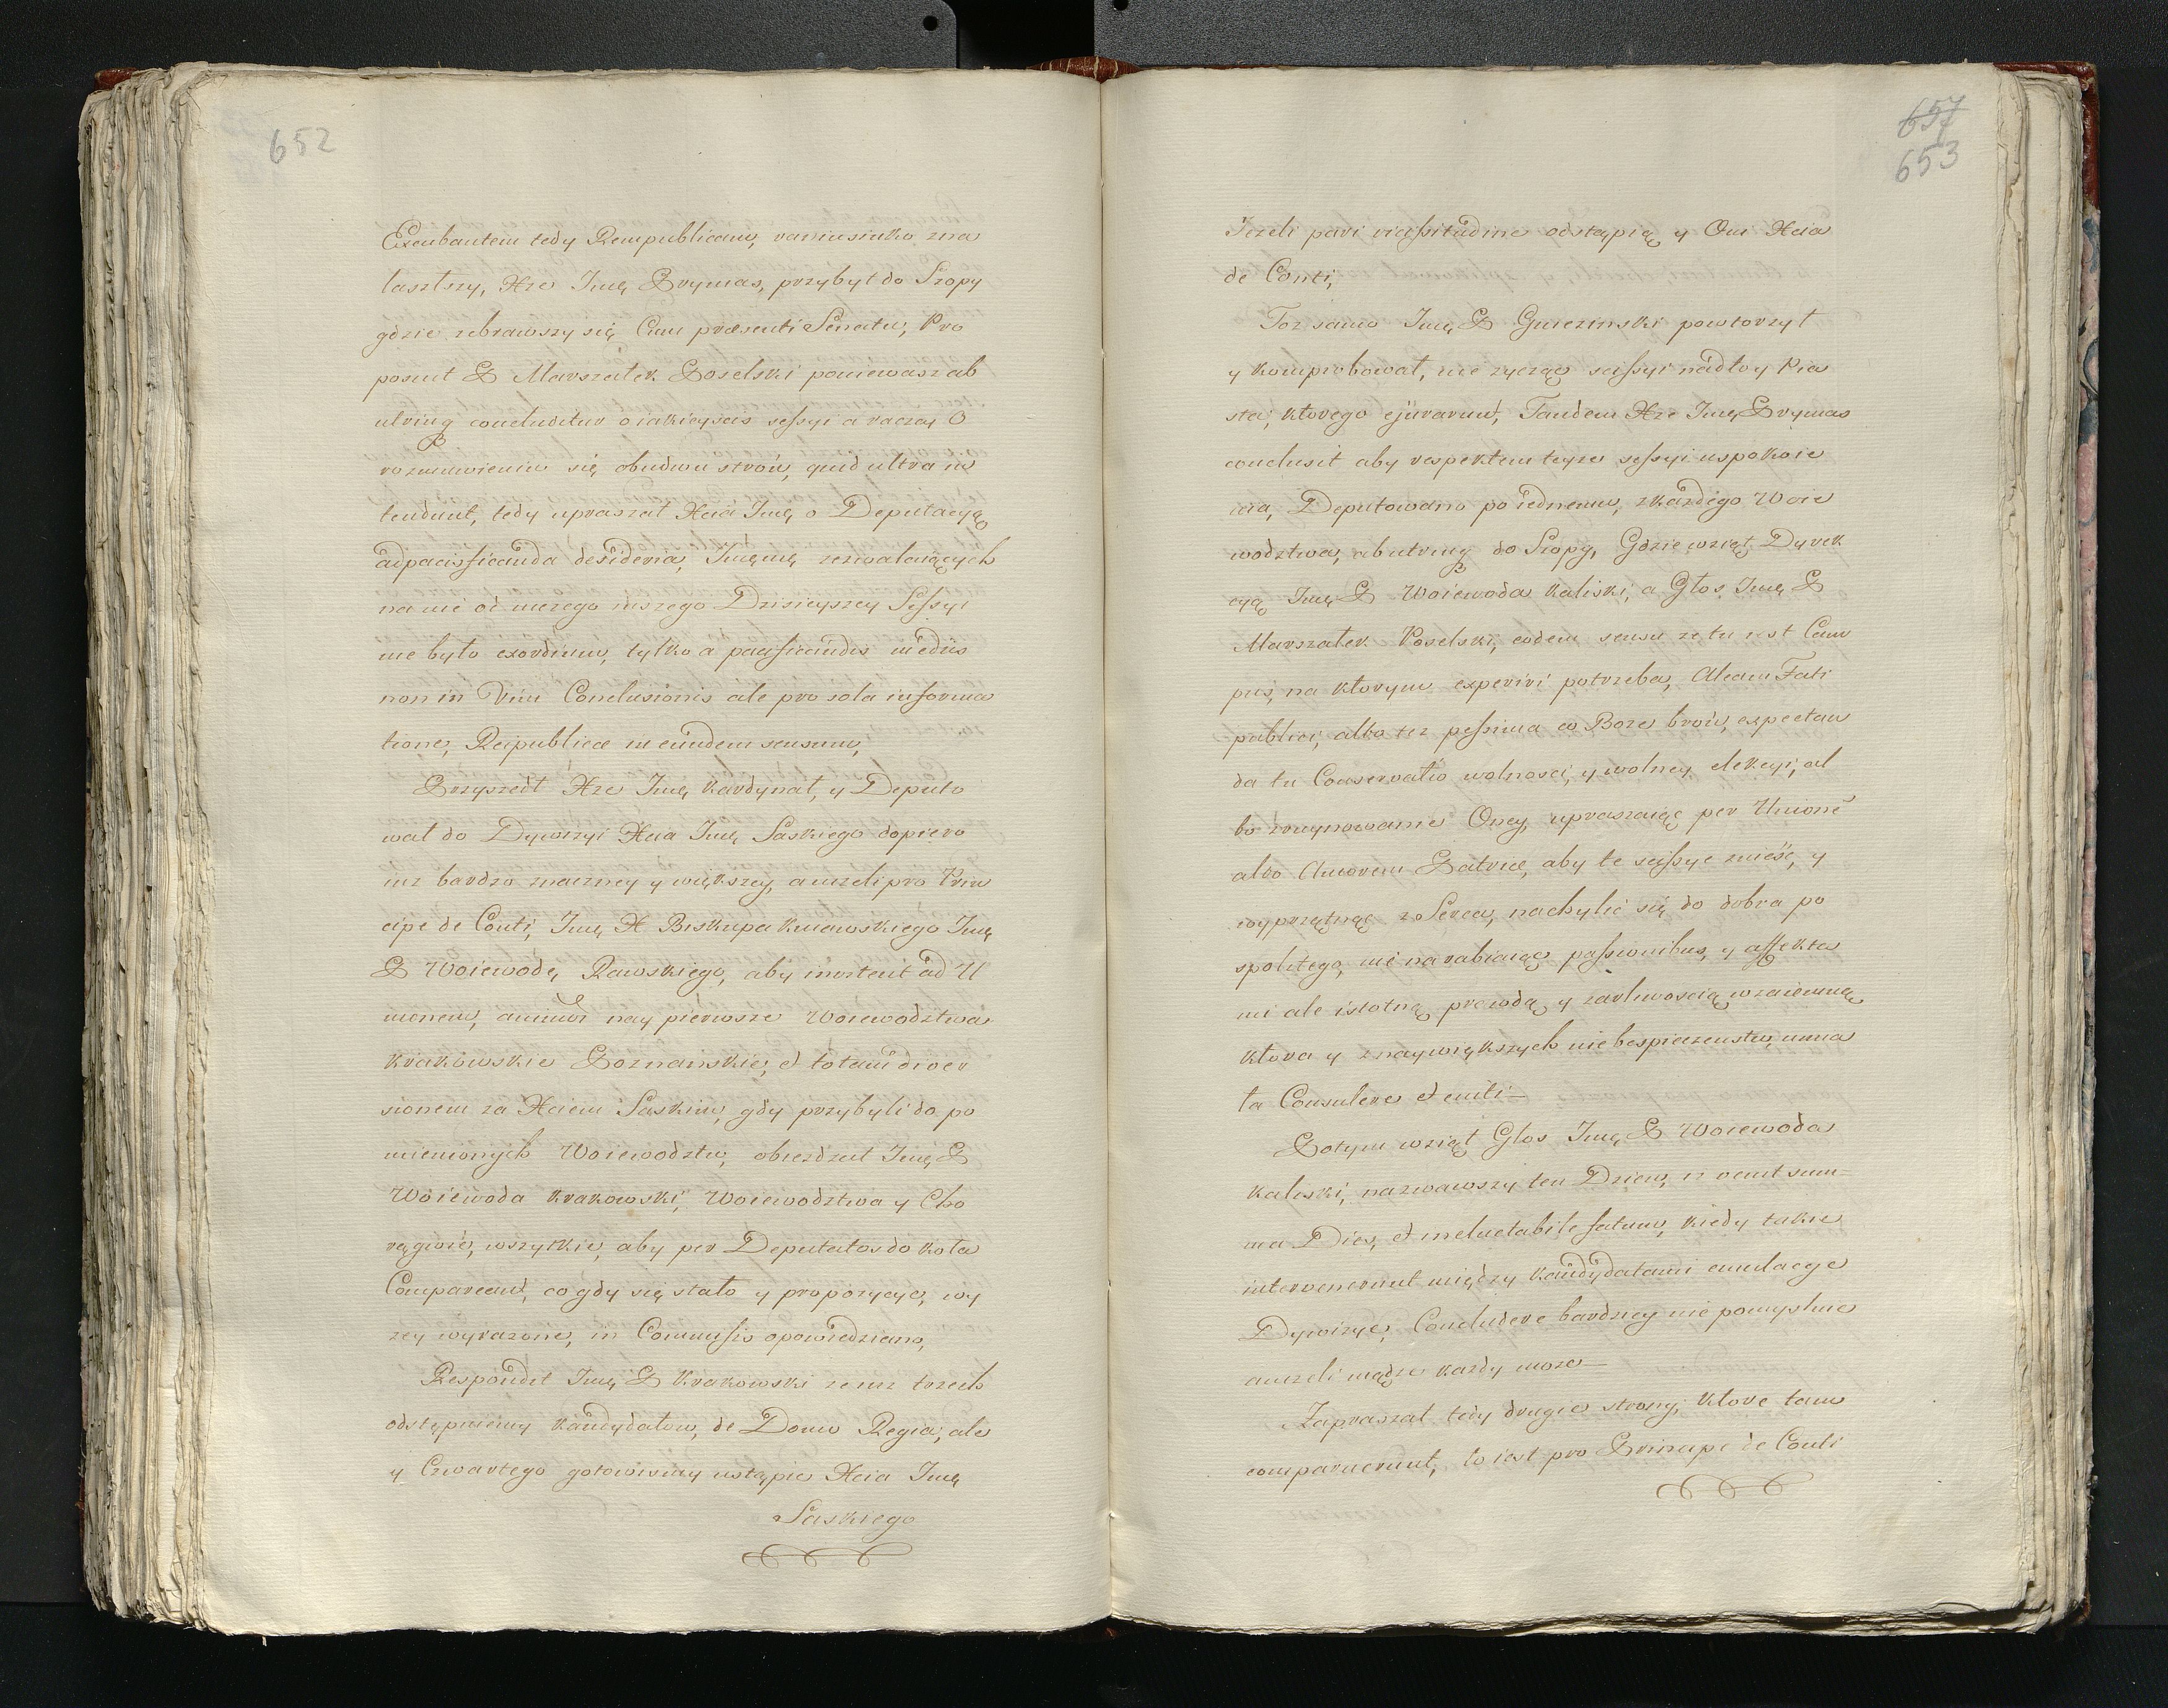 652
Excubantem tedy Rempublicam, raniusinko zna
lasztszy, Xże Jmę Prymas, przybył do Szopy
gdzie zebrawszy się Cum præsenti Senatu, Pro
posuit P Marszałek Poselski poniewasz ab
utrinq concluditur o iakieyscis sessyi a raczey O
rozmowieniu się obudwu stron, quid ultra in
tendunt, tedy upraszał Xcia Jmę o Deputacyą
ad pacificanda desideria, Jmęmę zezwalaiących
na nię od niczego inszego Dzisieyszey Sessyi
nie było exordium, tylko a pacificandis mediis
non in Vim Conclusionis ale pro sola informa
tione, Reipublicæ in eundem sensum,
Przyszedł Xże Jmę kardynał, y Deputo
wał do Dywizyi Xcia Jmę Saskiego dopiero
iuż bardzo znaczney y większey, aniżeli pro Prin
cipe de Conti, Jmę X Biskupa kuiawskiego Jmę
P Woiewodę Rawskiego, aby invitent ad U
nionem, animos nay pierwsze Woiewodztwa
krakowskie Poznanskie, et totam diver
sionem za Xciem Saskim, gdy przybyli do po
mienionych Woiewodztw, obiezdzał Jmę P
Woiewoda krakowski, Woiewodztwa y Cho
rągwie, wszytkie, aby per Deputatos do koła
Compareant, co gdy się stało y propozycye, wy
zey wyrazone, in Commissis opowiedziano,
Respondit Jmę P krakowski ze iuz trzech
odstępuiemy kandydatow, de Domo Regia, ale
y Czwartego gotowismy ustąpic Xcia Jmę
Saskiego
657
653
Iezeli pari vicissitudine odstąpią y Oni Xcia
de Conti,
Toz samo Jmę P Gnieznski powtorzył
y komprobował, nie zycząc scissyi nad to y Pia
sta, ktorego ejurarunt, Tandem Xże Jmę Prymas
conclusit aby respektem teyze sessyi uspokoie
nia, Deputowano po iednemu, z każdego Woie
wodztwa, ab utrinq do Szopy, Gdzie wziął Dyrek
cyą Jmę P Woiewoda kaliski, a Głos Jmę P
Marszałek Poselski, eodem sensu ze tu iest Cam
pus, na ktorym experiri potrzeba, Aleam Fati
publici, albo tez pessima co Boze bron, expectan
da tu Conservatio wolnosci, y wolney elekcyi, al
bo zruynowanie Oney, upraszaiąc per Unionē
albo Amorem Patriæ, aby te scissye znieść, y
wyprzątnąć z Serca, nachylić się do dobra po
spolitego, nie narabiaiąc passionibus, y affekta
mi ale istotną prawdą y zarliwoscią wzaiemną
ktora y z naywiększych niebespieczenstw, umia
ta Consulere et uniti—
Potym wziął Głos Jmę P Woiewoda
kaliski, nazwawszy ten Dzien, iz venit sum
ma Dies, et ineluctabile fatum, kiedy takie
intervenerunt między kandydatami emulacye
Dywizye, Concludere bardziey nie pomyslnie
anizeli mądrze kazdy moze—
Zapraszał tedy drugie strony, ktore tam
comparuerunt, to iest pro Principe de Conti